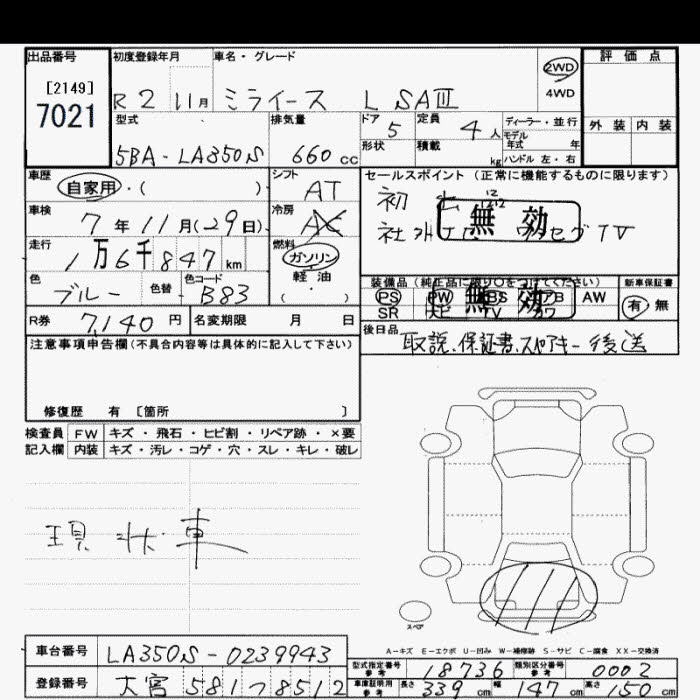 出品番号
[2149]
7021
初度登録年月
R2 11月
車名・グレード
ミライース L SAⅢ
2WD
4WD
評価点
外装 内装
型式
5BA-LA350S
排気量
660 cc
ドア 5
形状
定員 4人
積載 kg
ディーラー・並行
モデル年式 年
ハンドル 左・右
車歴
自家用・( )
シフト
AT
車検
7年11月(29日)
冷房
AC
走行
1万6千847km
燃料
ガソリン
軽・油
( )
色
ブルー
色替
色コード
B83
R券 7,140円
名変期限 月 日
セールスポイント(正常に機能するものに限ります)
無効
TV
無効
PS PW AW
SR TV
新車保証書
有 無
後日品 取説、保証書、スペアキー後送
注意事項申告欄(不具合内容等は具体的に記入して下さい)
修復歴 有 [箇所 ]
検査員 FW キズ・飛石・ヒビ割・リペア跡・×要
記入欄 内装 キズ・汚レ・コゲ・穴・スレ・キレ・破レ
現状車
スペア
A-キズ E-エクボ U-凹み W-補修跡 S-サビ C-腐食 XX-交換済
車台番号 LA350S-0239943
登録番号 大宮 581 つ 8512
型式指定番号 参考 18736 類別区分番号 参考 0002
車庫証明用 参考 長さ 339cm 幅 147cm 高さ 150cm